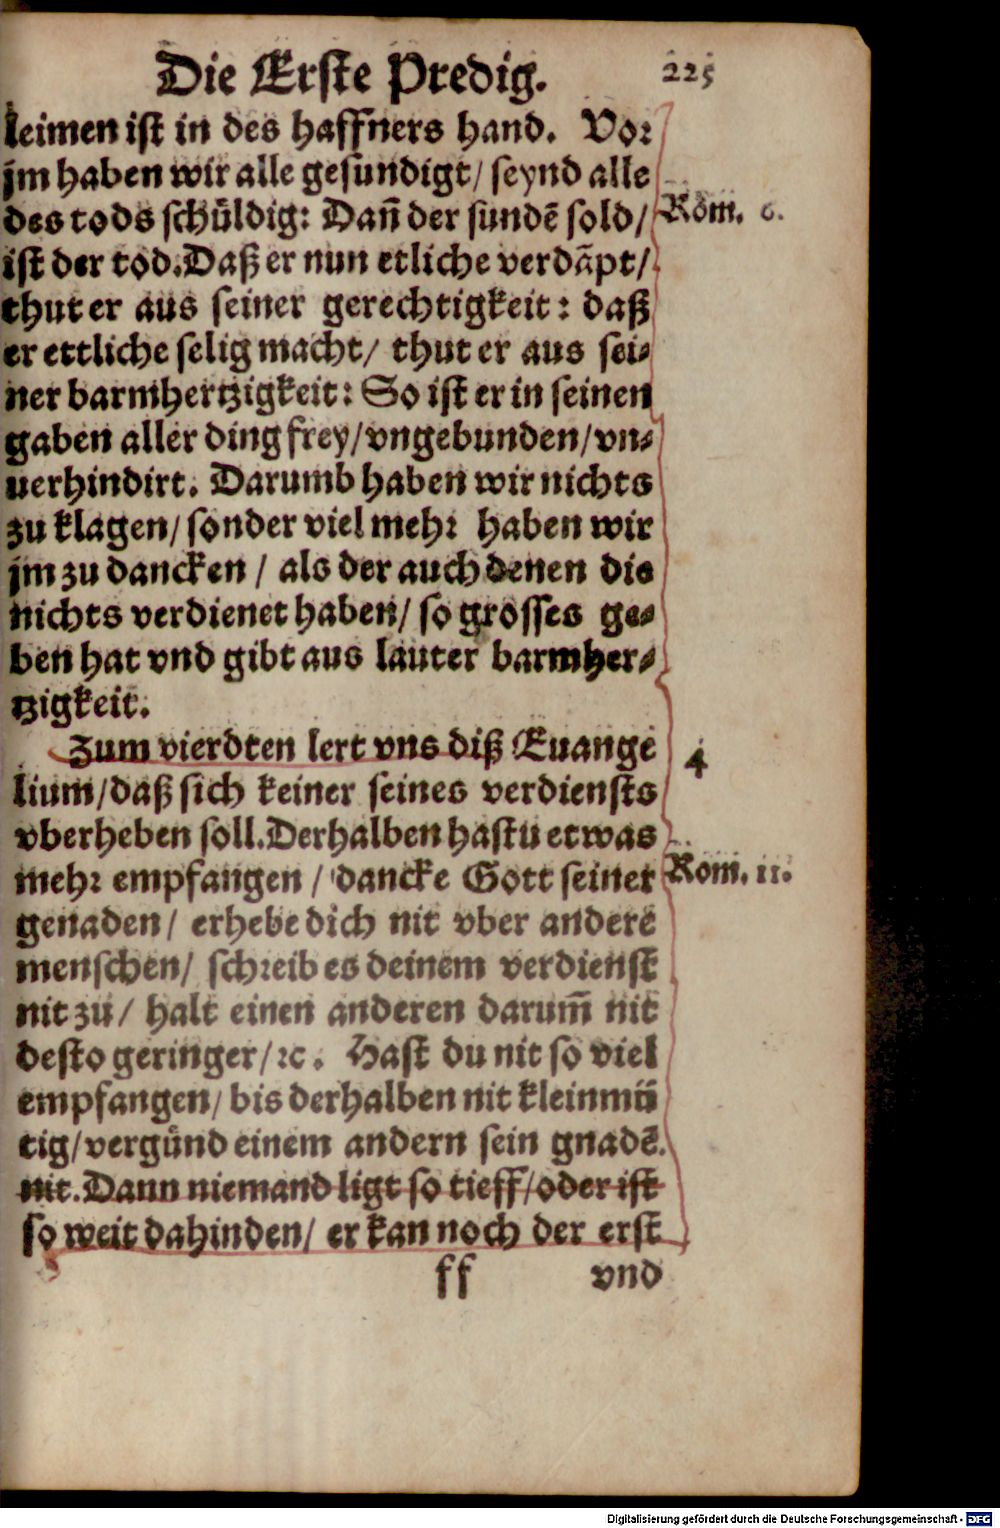 Die Erste Predig. 225
leimen ist in des haffners hand. Vor
jm haben wir alle gesundigt/ seynd alle
des tods schüldig: Dañ der sundẽ sold/ Rom. 6.
ist der tod. Daß er nun etliche verdãpt/
thut er aus seiner gerechtigkeit: daß
er ettliche selig macht/ thut er aus sei-
ner barmhertzigkeit: So ist er in seinen
gaben aller ding frey/ vngebunden/ vn-
uerhindirt. Darumb haben wir nichts
zu klagen/ sonder viel mehr haben wir
jm zu dancken/ als der auch denen die
nichts verdienet haben/ so grosses ge-
ben hat vnd gibt aus lauter barmher-
tzigkeit.
Zum vierdten lert vns diß Euange 4
lium/ daß sich keiner seines verdiensts
vberheben soll. Derhalben hastu etwas
mehr empfangen/ dancke Gott seiner Rom. 11.
genaden/ erhebe dich nit vber anderẽ
menschen/ schreib es deinem verdienst
nit zu/ halt einen anderen darum̃ nit
desto geringer/ ꝛc. Hast du nit so viel
empfangen/ bis derhalben nit kleinmü
tig/ vergünd einem andern sein gnadẽ.
nit. Dann niemand ligt so tieff/ oder ist
so weit dahinden/ er kan noch der erst
ff vnd
Digitalisierung gefördert durch die Deutsche Forschungsgemeinschaft - DFG